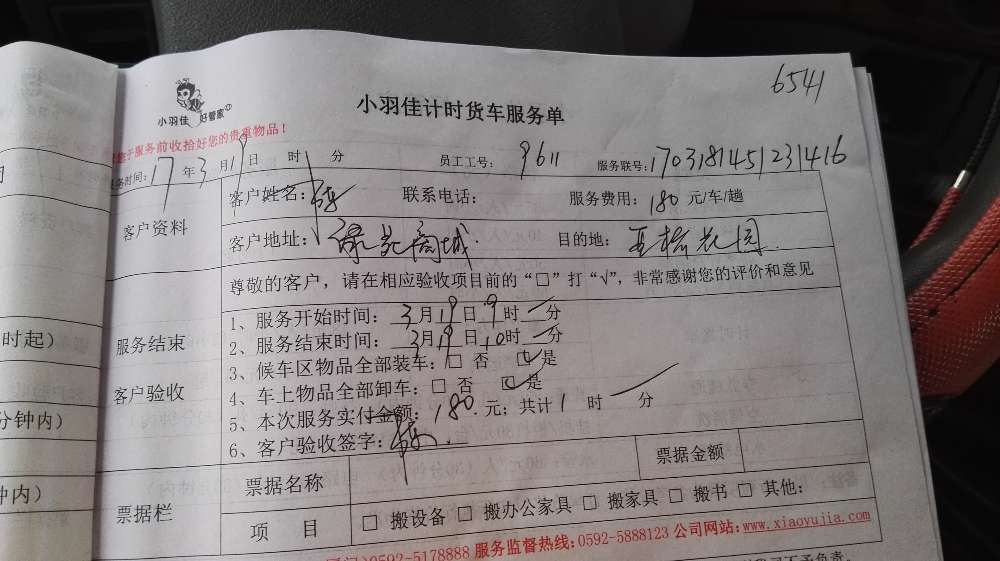 6541
小羽佳 好管家
小羽佳计时货车服务单
服务前收拾好您的贵重物品！
务时间：17年3月19日 时 分 员工工号：9611 服务联号：1703181451231416
客户资料
客户姓名： 联系电话： 服务费用：180元/车/趟
客户地址：绿苑商城 目的地：花园
尊敬的客户，请在相应验收项目前的“□”打“√”，非常感谢您的评价和意见
时起）
服务结束
客户验收
1、服务开始时间：3月19日9时 分
2、服务结束时间：3月19日10时 分
3、候车区物品全部装车：□ 否 ☑ 是
4、车上物品全部卸车：□ 否 ☑ 是
5、本次服务实付金额：180.元；共计1时 分
6、客户验收签字：
分钟内）
钟内）
票据栏
票据名称 票据金额
项 目 □ 搬设备 □ 搬办公家具 □ 搬家具 □ 搬书 □ 其他：
0592-5178888 服务监督热线：0592-5888123 公司网站：www.xiaoyujia.com